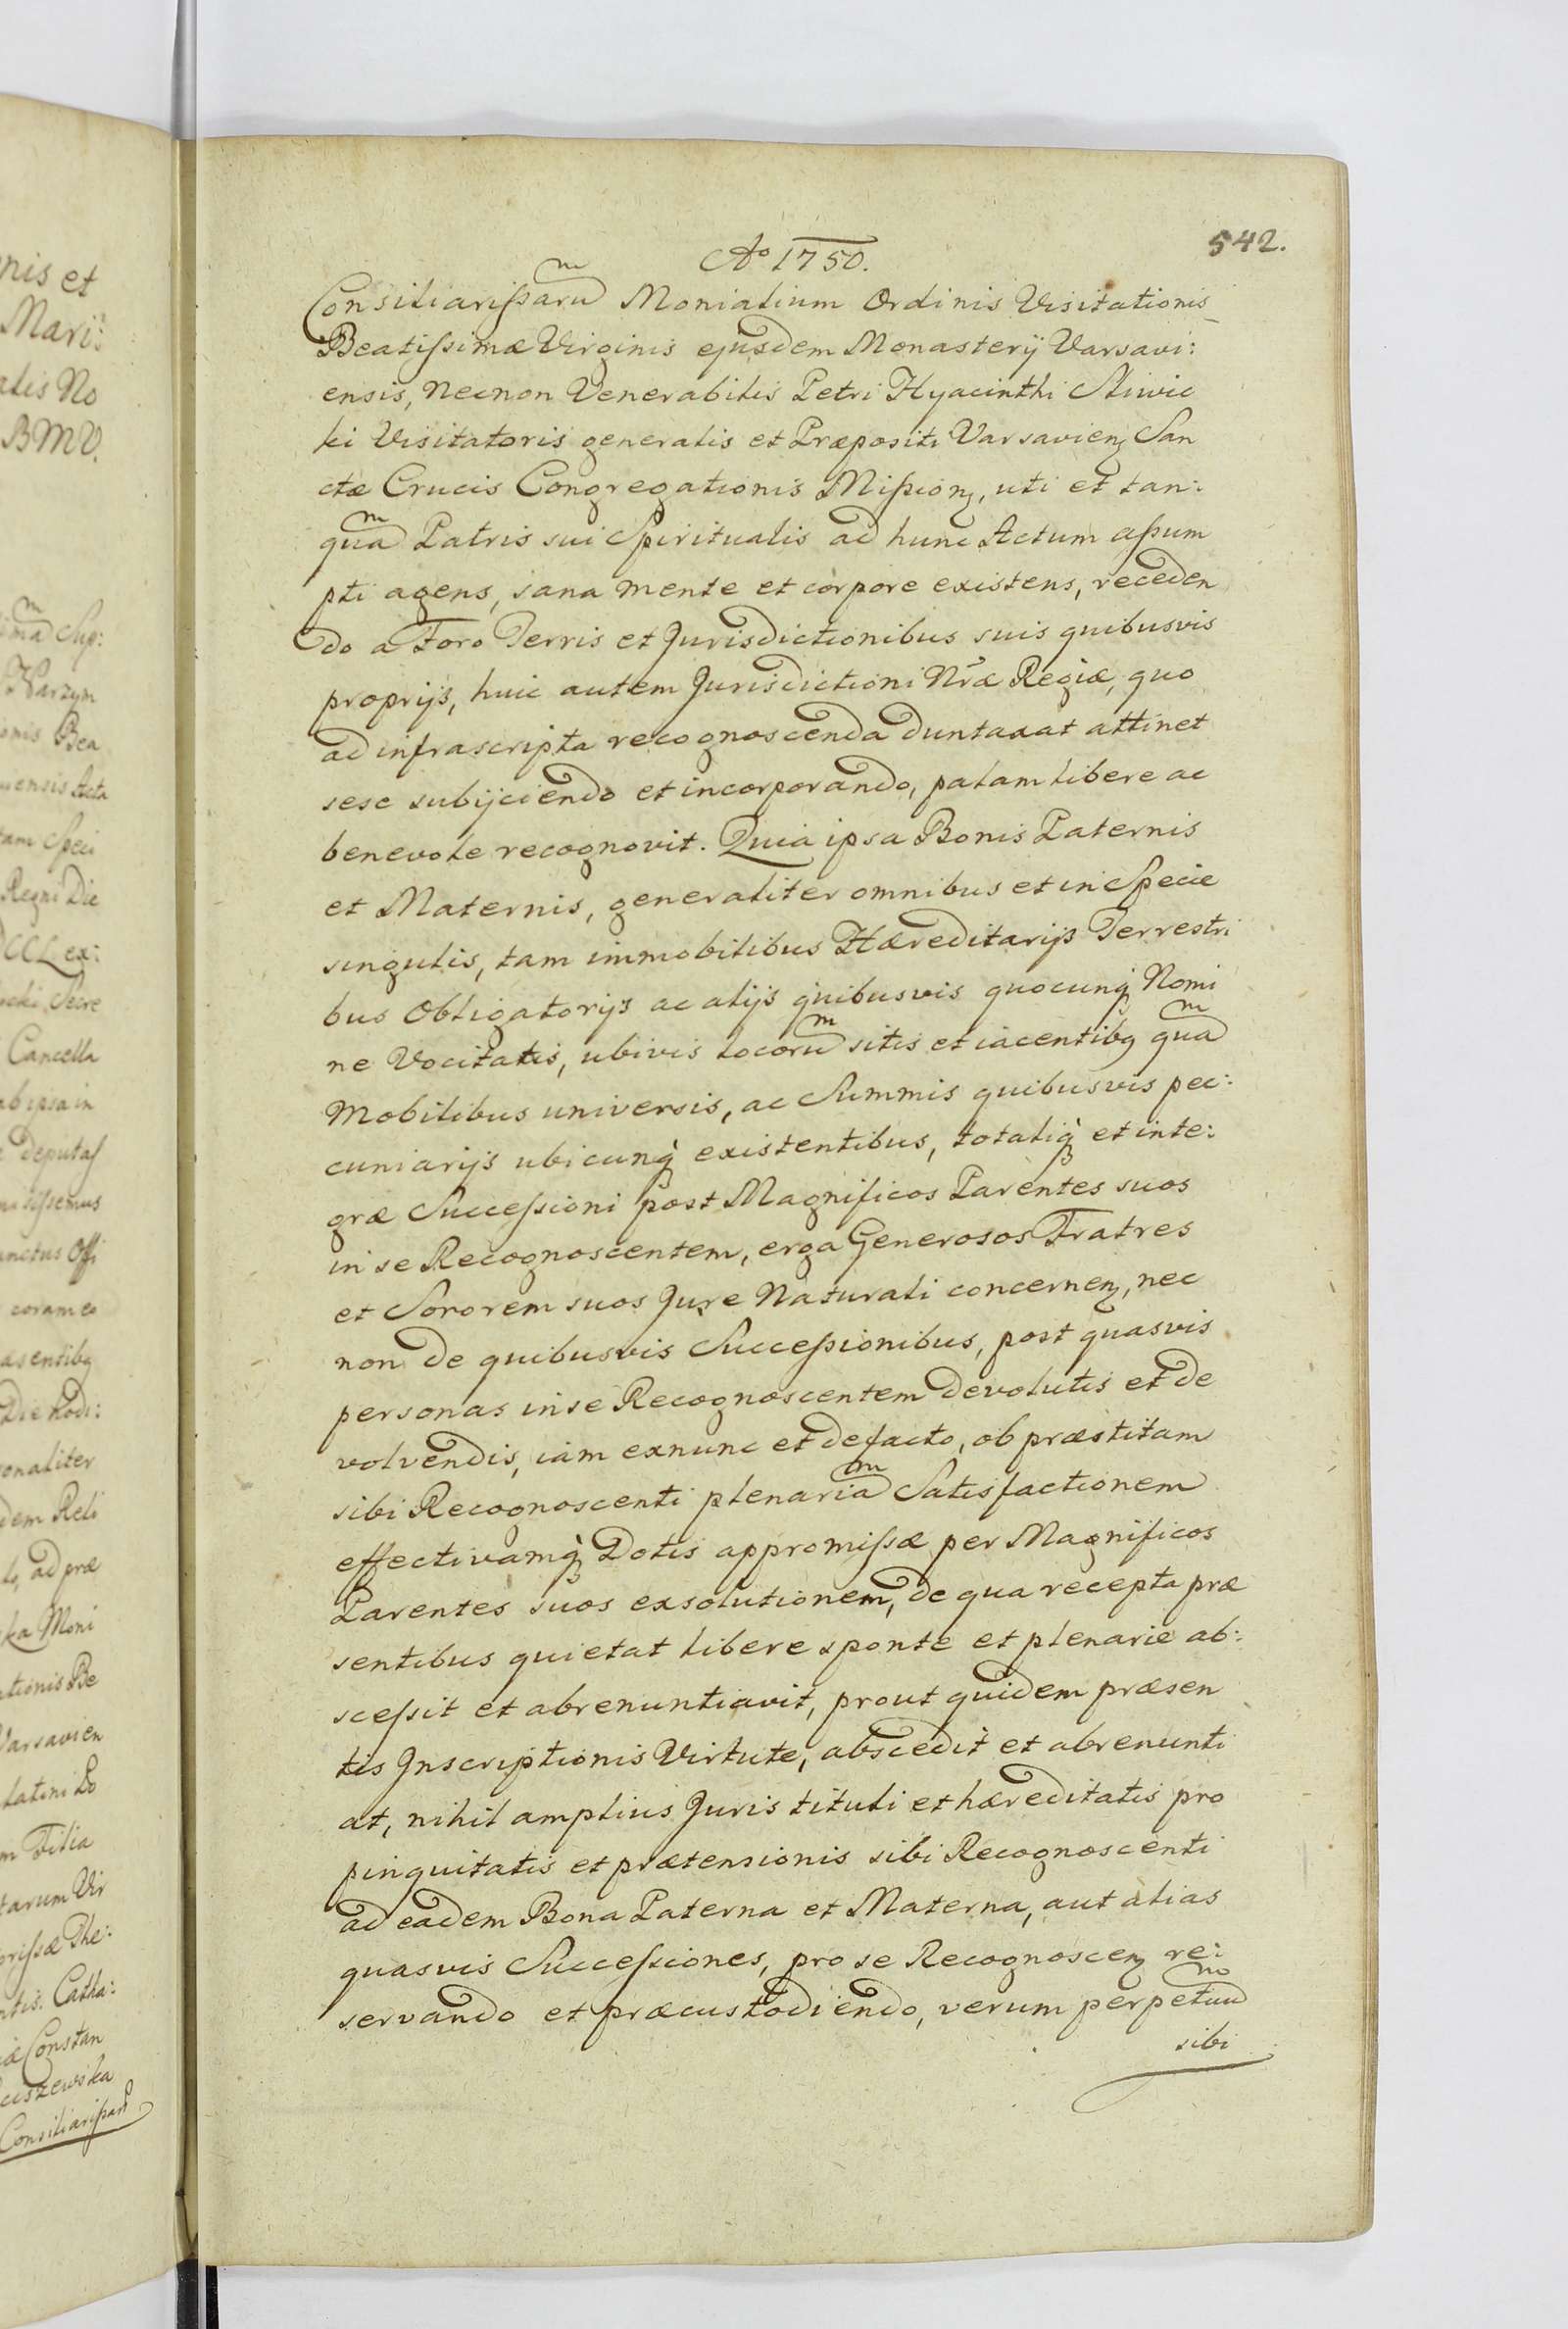 542.
Ao 1750.
Consiliarißarum Monialium Ordinis Visitationis
Beatißimæ Virginis ejusdem Monasterÿ Varsavi:
ensis, Necnon Venerabilis Petri Hyacinthi Sliwic
ki Visitatoris generalis et Præpositi Varsavien San
ctæ Crucis Congregationis Mißion, uti et tan:
quam Patris sui Spiritualis ad hunc Actum aßum
pti agens, sana mente et corpore existens, receden
do a Foro Terris et Jurisdictionibus suis quibusvis
proprÿs, huic autem Jurisdictioni Nræ Regiæ, quo
ad infrascripta recognoscenda duntaxat attinet
sese subÿciendo et incorporando, palam libere ac
benevole recognovit. Quia ipsa Bonis Paternis
et Maternis, generaliter omnibus et in Specie
singulis, tam immobilibus Hæreditarÿs Terrestri
bus Obligatorÿs ac alÿs quibusvis quocunq Nomi
ne Vocitatis, ubivis locorum sitis et iacentibq quam
Mobilibus universis, ac Summis quibusvis pec:
cuniarÿs ubicunq existentibus, totaliq et inte:
græ Succeßioni post Magnificos Parentes suos
in se Recognoscentem, erga Generosos Fratres
et Sororem suos Jure Naturali concernen, nec
non de quibusvis Succeßionibus, post quasvis
personas in se Recognoscentem devolutis et de
volvendis, iam exnunc et defacto, ob præstitam
sibi Recognoscenti plenariam Satisfactionem
effectivamq Dotis appromißæ per Magnificos
Parentes suos exsolutionem, de qua recepta præ
sentibus quietat libere sponte et plenarie ab:
sceßit et abrenuntiavit, prout quidem præsen
tis Inscriptionis Virtute, abscedit et abrenunti
at, nihil amplius Juris tituli et hæreditatis pro
pinquitatis et prætensionis sibi Recognoscenti
ad eadem Bona Paterna et Materna, aut alias
quasvis Succeßiones, pro se Recognoscen re:
servando et præcustodiendo, verum perpetuum
sibi